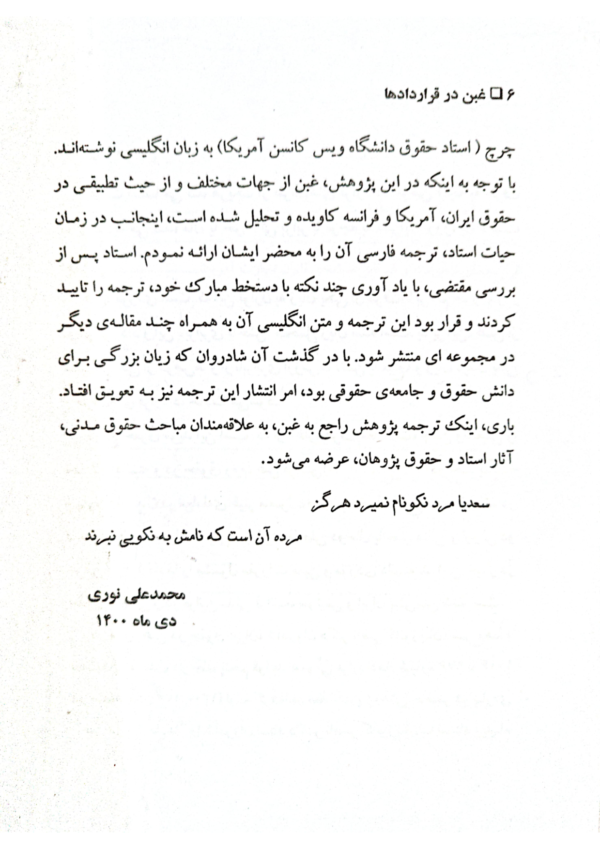 ۶ □ غبن در قراردادها
چرچ ( استاد حقوق دانشگاه ویس کانسن آمریکا) به زبان انگلیسی نوشته‌اند.
با توجه به اینکه در این پژوهش، غبن از جهات مختلف و از حیث تطبیقی در
حقوق ایران، آمریکا و فرانسه کاویده و تحلیل شده است، اینجانب در زمان
حیات استاد، ترجمه فارسی آن را به محضر ایشان ارائه نمودم. استاد پس از
بررسی مقتضی، با یاد آوری چند نکته با دستخط مبارک خود، ترجمه را تایید
کردند و قرار بود این ترجمه و متن انگلیسی آن به همراه چند مقاله‌ی دیگر
در مجموعه ای منتشر شود. با در گذشت آن شادروان که زیان بزرگی برای
دانش حقوق و جامعه‌ی حقوقی بود، امر انتشار این ترجمه نیز به تعویق افتاد.
باری، اینک ترجمه پژوهش راجع به غبن، به علاقه‌مندان مباحث حقوق مدنی،
آثار استاد و حقوق پژوهان، عرضه می‌شود.
سعدیا مرد نکونام نمیرد هرگز
مرده آن است که نامش به نکویی نبرند
محمدعلی نوری
دی ماه ۱۴۰۰